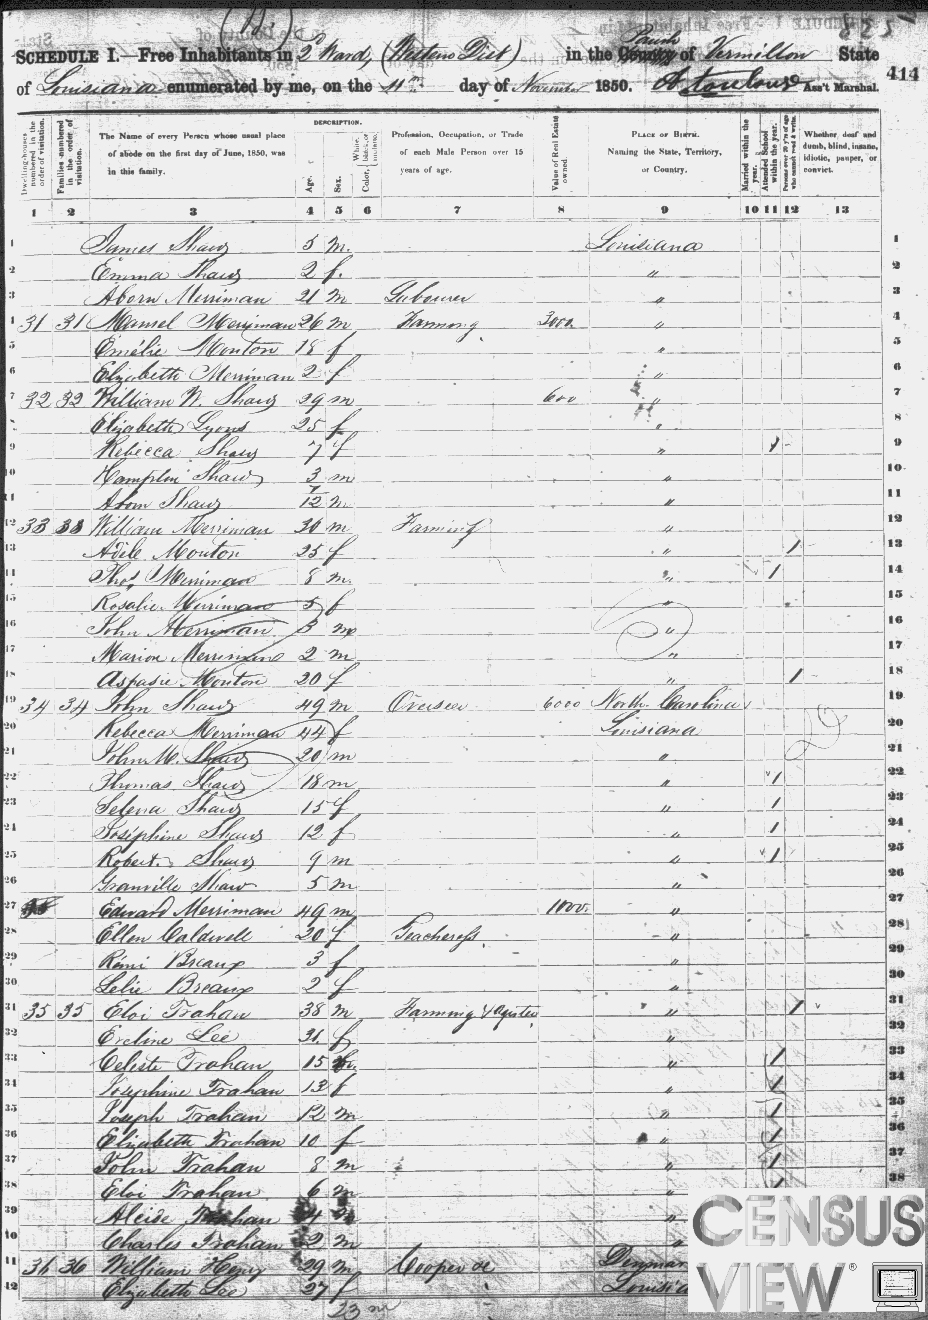 (11.)
SCHEDULE I.—Free Inhabitants in 2d Ward, (Western Dist) in the Parish County of Vermillion State
of Louisiana enumerated by me, on the 11th day of November 1850. Ass't Marshal.
414
Dwelling-houses numbered in the order of visitation.
Families numbered in the order of visitation.
The Name of every Person whose usual place of abode on the first day of June, 1850, was in this family.
DESCRIPTION.
Age.
Sex.
Color, White, black, or mulatto.
Profession, Occupation, or Trade of each Male Person over 15 years of age.
Value of Real Estate owned.
PLACE OF BIRTH. Naming the State, Territory, or Country.
Married within the year.
Attended School within the year.
Persons over 20 y'rs of age who cannot read & write.
Whether deaf and dumb, blind, insane, idiotic, pauper, or convict.
1 2 3 4 5 6 7 8 9 10 11 12 13
1 James Shaw 5 m. Louisiana 1
2 Emma Shaw 2 f. " 2
3 Aborn Merriman 21 m Labourer " 3
4 31 31 Mansel Merriman 26 m Farming 3000 " 4
5 Emélie Mouton 18 f " 5
6 Elizabeth Merriman 2 f " 6
7 32 32 William W. Shaw 29 m 600 " 7
8 Elizabeth Lyons 25 f " 8
9 Rebecca Shaw 7 f " 1 9
10 Hamplin Shaw 3 m " 10
11 Aborn Shaw 7/12 m " 11
12 33 33 William Merriman 30 m Farming " 12
13 Adéle Mouton 25 f " 1 13
14 Thos Merriman 8 m " 1 14
15 Rosalie Merriman 5 f " 15
16 John Merriman 3 m " 16
17 Marion Merriman 2 m " 17
18 Aspasie Mouton 20 f " 1 18
19 34 34 John Shaw 49 m Overseer 6000 North Carolina 19
20 Rebecca Merriman 44 f Louisiana 20
21 John M. Shaw 20 m " 21
22 Thomas Shaw 18 m " 1 22
23 Selena Shaw 15 f " 1 23
24 Joséphine Shaw 12 f " 1 24
25 Robert Shaw 9 m " 1 25
26 Granville Shaw 5 m " 26
27 Edward Merriman 49 m 1000. " 27
28 Ellen Caldwell 20 f Teacheress " 28
29 Rémi Breaux 3 f " 29
30 Lelie Breaux 2 f " 30
31 35 35 Eloi Trahan 38 m Farming & " 1 31
32 Ercline Lee 31 f " 32
33 Celeste Trahan 15 " 1 33
34 Josephine Trahan 13 f " 1 34
35 Joseph Trahan 12 m " 1 35
36 Elizabeth Trahan 10 f " 1 36
37 John Trahan 8 m " 1 37
38 Eloi Trahan 6 m " 38
39 Alcide Trahan 4 m "
40 Charles Trahan 2 m "
41 36 36 William Henry 29 m Cooper Denmar
42 Elizabeth Lee 27 f Louisi
23 m
CENSUS
VIEW®